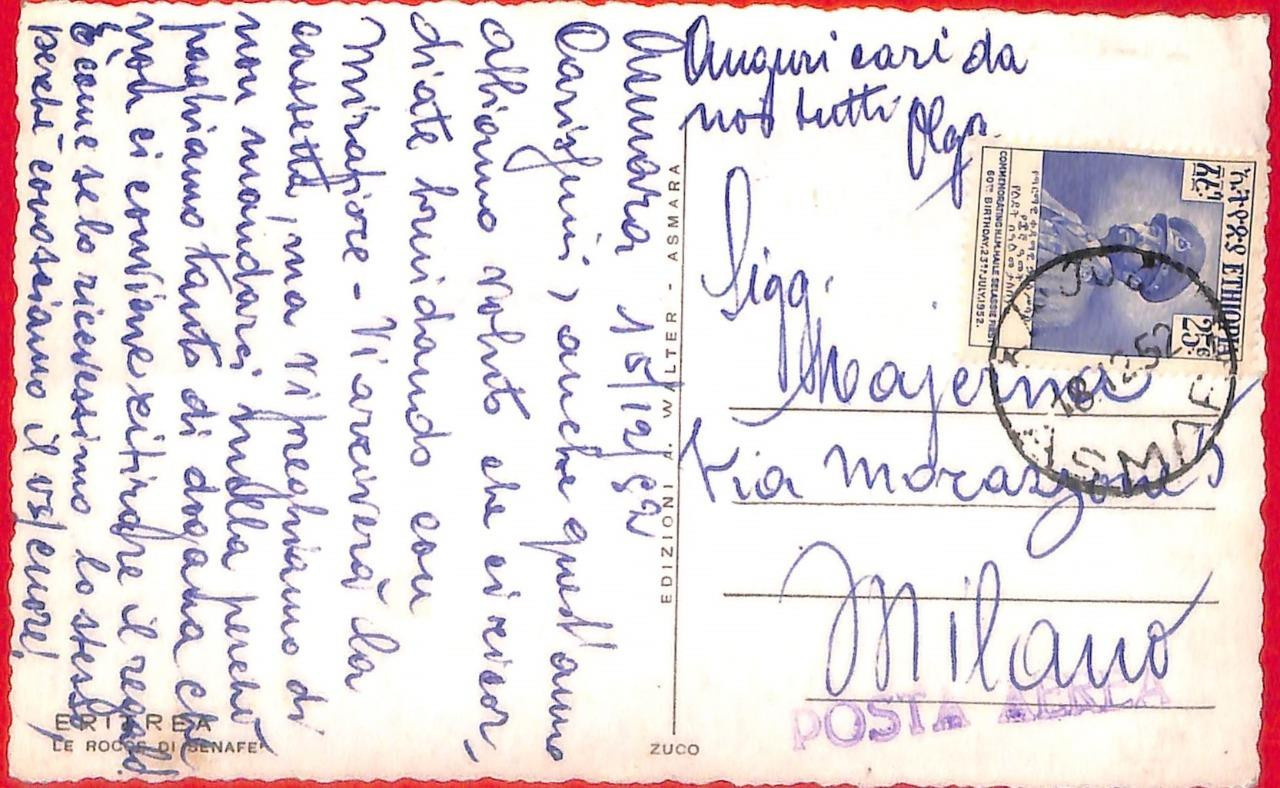 Asmara 15/12/52
Carissimi, anche quest'anno
abbiamo voluto che ci ricor,
diate brindando con
Mirafiore - Vi arriverà la
cassetta, ma vi preghiamo di
non mandarci nulla perché
paghiamo tanto di dogana che
non ci conviene ritirare il regalo
È come se lo ricevessimo lo stesso
perché conosciamo il vs/cuore!
Auguri cari da
noi tutti Olga
Sigg.
Majerna
Via Morazzone 5
Milano
POSTA AEREA
EDIZIONI A. WALTER - ASMARA
ERITREA
LE ROCCE DI SENAFE'
ZUCO
ETHIOPIA
25c
COMMEMORATING H.I.M. HAILE SELASSIE FIRST
60TH BIRTHDAY. 23RD JULY. 1952.
18 12 52
ASMARA